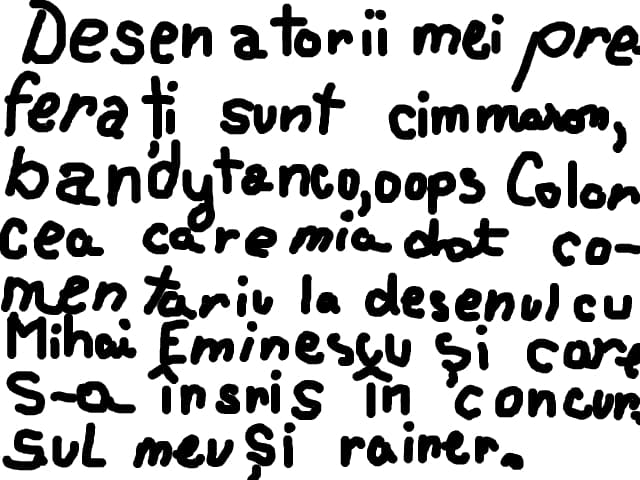 Desenatorii mei pre
ferați sunt cimmaron,
bandytanco,oops Color
cea care mia dat co-
mentariu la desenul cu
Mihai Eminescu și care
s-a însris în concur
sul meu și rainer.